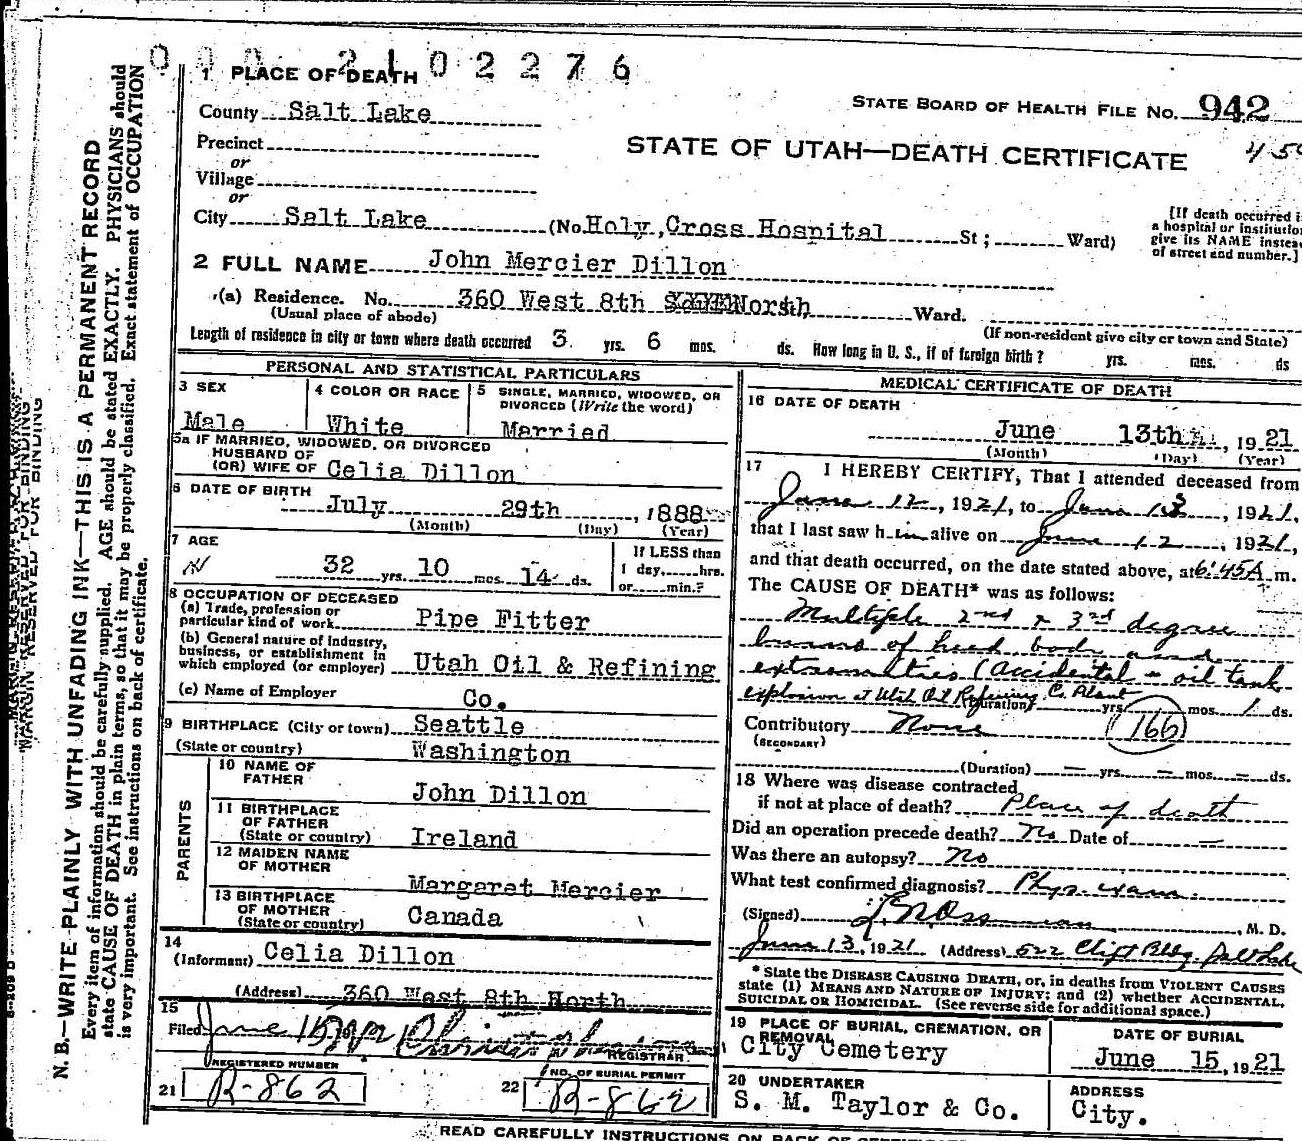 0 0 0 2 1 0 2 2 7 6
1 PLACE OF DEATH
STATE BOARD OF HEALTH FILE NO. 942
County Salt Lake
STATE OF UTAH—DEATH CERTIFICATE
Precinct
or
Village
or
City Salt Lake (No. Holy Cross Hospital St ; Ward)
[If death occurred i
a hospital or institution
give its NAME instea
of street and number.]
2 FULL NAME John Mercier Dillon
(a) Residence. No. 360 West 8th North Ward.
(Usual place of abode) (If non-resident give city or town and State)
Length of residence in city or town where death occurred 3 yrs. 6 mos. ds. How long in U. S., if of foreign birth ? yrs. mos. ds
PERSONAL AND STATISTICAL PARTICULARS
3 SEX Male
4 COLOR OR RACE White
5 SINGLE, MARRIED, WIDOWED, OR
DIVORCED (Write the word)
Married
5a IF MARRIED, WIDOWED, OR DIVORCED
HUSBAND OF
(OR) WIFE OF Celia Dillon
6 DATE OF BIRTH
July 29th, 1888
(Month) (Day) (Year)
7 AGE
32 yrs. 10 mos. 14 ds.
If LESS than
1 day, hrs.
or min.?
8 OCCUPATION OF DECEASED
(a) Trade, profession or
particular kind of work Pipe Fitter
(b) General nature of industry,
business, or establishment in
which employed (or employer) Utah Oil & Refining
(c) Name of Employer Co.
9 BIRTHPLACE (City or town) Seattle
(State or country) Washington
PARENTS
10 NAME OF
FATHER John Dillon
11 BIRTHPLACE
OF FATHER
(State or country) Ireland
12 MAIDEN NAME
OF MOTHER Margaret Mercier
13 BIRTHPLACE
OF MOTHER
(State or country) Canada
14
(Informant) Celia Dillon
(Address) 360 West 8th North
15
Filed June 15
REGISTRAR
REGISTERED NUMBER
21 R-862
NO. OF BURIAL PERMIT
22 R-862
MEDICAL CERTIFICATE OF DEATH
16 DATE OF DEATH
June 13th, 1921
(Month) (Day) (Year)
17 I HEREBY CERTIFY, That I attended deceased from
June 12, 1921, to June 13, 1921,
that I last saw h im alive on June 12, 1921,
and that death occurred, on the date stated above, at 6:45A m.
The CAUSE OF DEATH* was as follows:
Multiple 2nd & 3rd degree
burns of head body and
extremities (Accidental - oil tank
explosion at Utah Oil Refining Co. Plant
(Duration) yrs. mos. 1 ds.
Contributory None 166
(SECONDARY)
(Duration) — yrs. — mos. — ds.
18 Where was disease contracted
if not at place of death? Place of death
Did an operation precede death? No Date of —
Was there an autopsy? No
What test confirmed diagnosis? Phys. exam.
(Signed) , M. D.
June 13, 1921 (Address) 522 Clift Bldg. Salt Lake
* State the DISEASE CAUSING DEATH, or, in deaths from VIOLENT CAUSES
state (1) MEANS AND NATURE OF INJURY; and (2) whether ACCIDENTAL,
SUICIDAL OR HOMICIDAL. (See reverse side for additional space.)
19 PLACE OF BURIAL, CREMATION, OR
REMOVAL
City Cemetery
DATE OF BURIAL
June 15, 1921
20 UNDERTAKER
S. M. Taylor & Co.
ADDRESS
City.
READ CAREFULLY INSTRUCTIONS ON BACK OF
MARGIN RESERVED FOR BINDING
N. B.—WRITE PLAINLY WITH UNFADING INK—THIS IS A PERMANENT RECORD
Every item of information should be carefully supplied. AGE should be stated EXACTLY. PHYSICIANS should
state CAUSE OF DEATH in plain terms, so that it may be properly classified. Exact statement of OCCUPATION
is very important. See instructions on back of certificate.